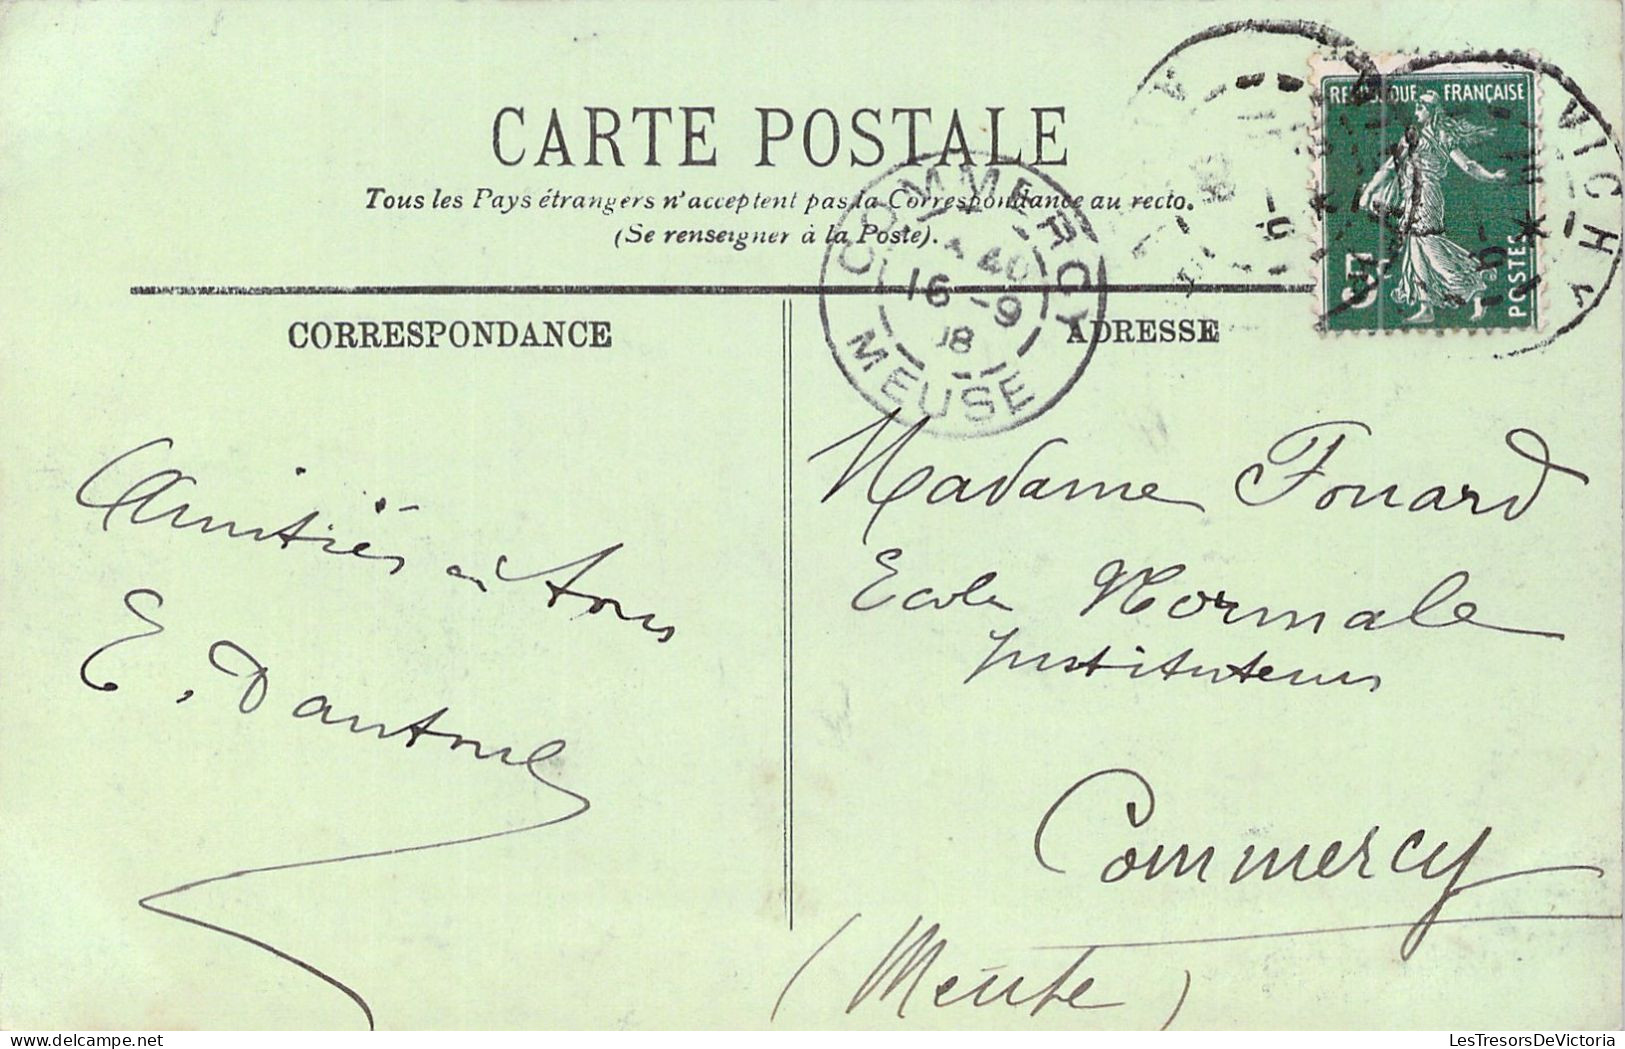 CARTE POSTALE
Tous les Pays étrangers n'acceptent pas la Correspondance au recto.
(Se renseigner à la Poste).
CORRESPONDANCE
ADRESSE
REPUBLIQUE FRANÇAISE
5c
POSTES
VICHY
COMMERCY
40
16 -9
08
MEUSE
Amitiés à tous
Madame Fouard
Ecole Normale
Instituteurs
Commercy
(Meuse)
LesTresorsDeVictoria